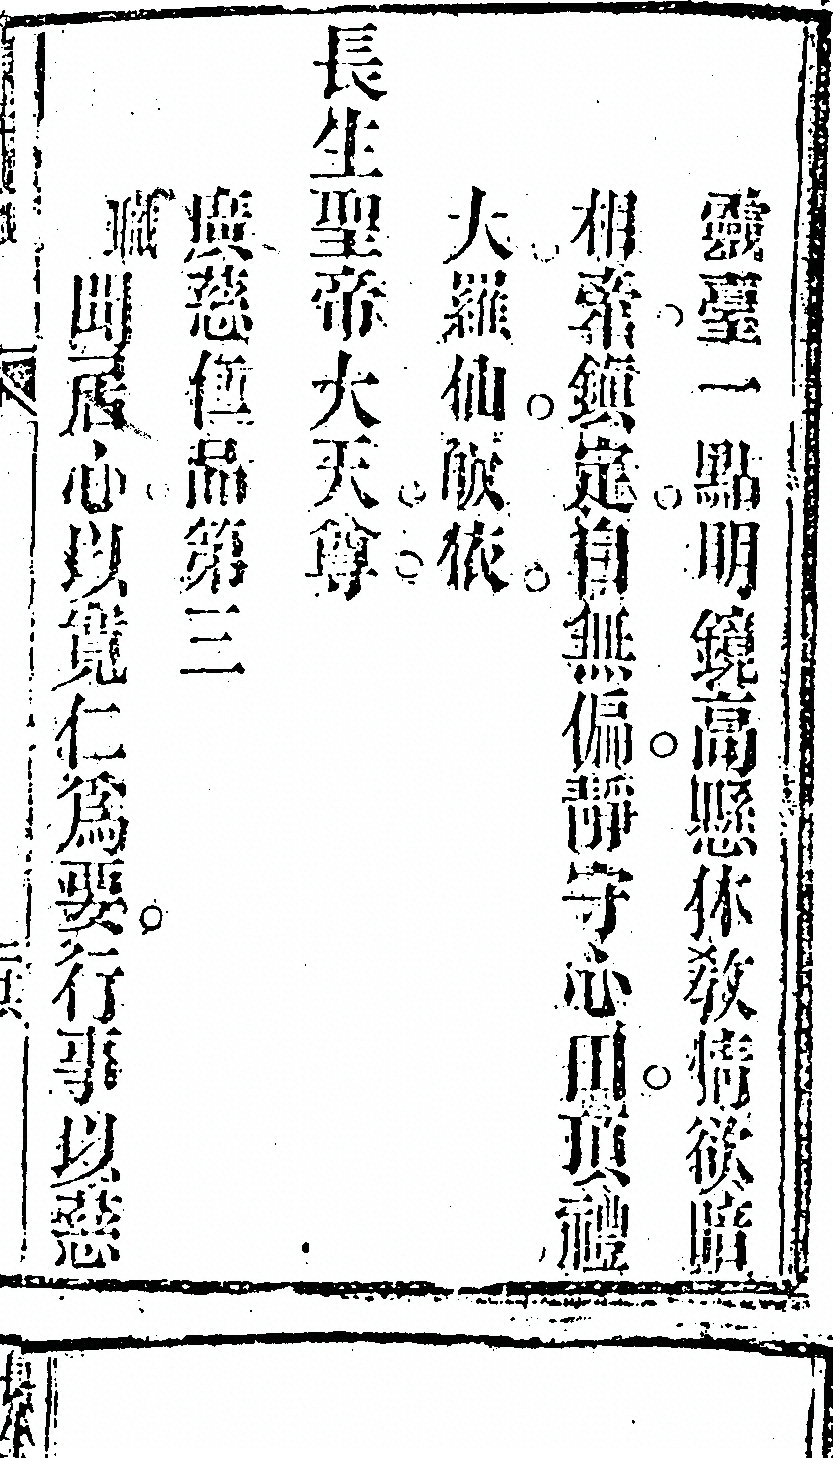 靈臺一點明鏡高懸休教情欲暗
相牽鎮定自無偏靜守心田頂禮
大羅仙皈依
長生聖帝大天尊
廣慈仁品第三
職
曰居心以寬仁爲要行事以慈